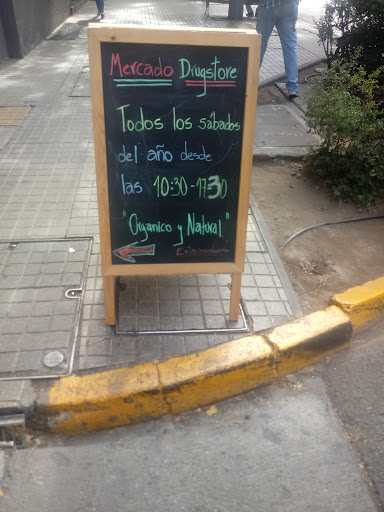 Mercado Drugstore
Todos los sábados
del año desde
las 10:30-17:30
"Organico y Natural"